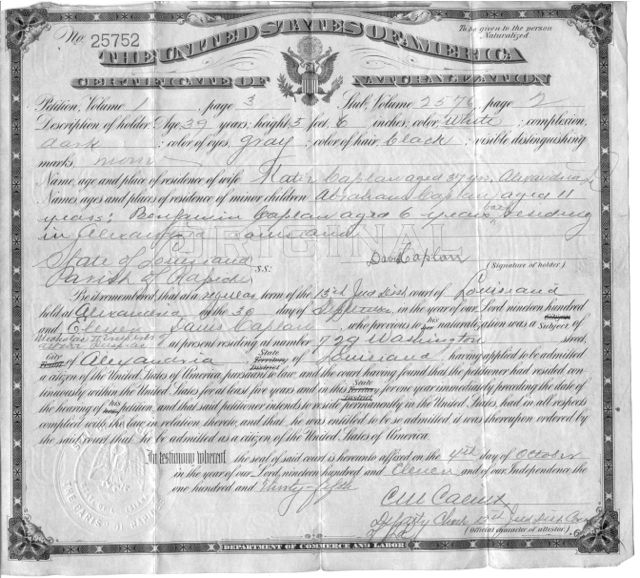 No. 25752
To be given to the person
Naturalized.
THE UNITED STATES OF AMERICA
CERTIFICATE OF NATURALIZATION
Petition, Volume 1, page 3 Stub, Volume 2576, page 2
Description of holder: Age, 39 years; height, 5 feet, 6 inches; color, White; complexion,
dark; color of eyes, gray; color of hair, black; visible distinguishing
marks, none
Name, age and place of residence of wife Katie Caplan aged 37 yrs, Alexandria La
Names, ages and places of residence of minor children Abraham Caplan aged 11
years; Benjamin Caplan aged 6 years, residing
in Alexandria Louisiana
ORIGINAL
State of Louisiana
Parish of Rapides S.S.: Davis Caplan
(Signature of holder)
Be it remembered, that at a regular term of the 13th Jud Dist court of Louisiana
held at Alexandria on the 30 day of September, in the year of our Lord nineteen hundred
and Eleven Davis Caplan, who previous to his naturalization was a Subject of
Nicholas II Emperor of
at present residing at number 729 Washington street,
City of Alexandria State Territory District of Louisiana, having applied to be admitted
a citizen of the United States of America pursuant to law, and the court having found that the petitioner had resided con-
tinuously within the United States for at least five years and in this State Territory District for one year immediately preceding the date of
the hearing of his petition, and that said petitioner intends to reside permanently in the United States, had in all respects
complied with the law in relation thereto, and that he was entitled to be so admitted, it was thereupon ordered by
the said court that he be admitted as a citizen of the United States of America.
In testimony whereof the seal of said court is hereunto affixed on the 4th day of October
in the year of our Lord nineteen hundred and Eleven and of our Independence the
one hundred and thirty-fifth
Deputy Clerk 13th Jud Dist Court
(Official character of attestor.)
DEPARTMENT OF COMMERCE AND LABOR